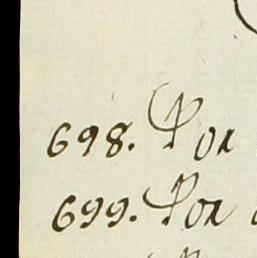 698. Por
699. Por